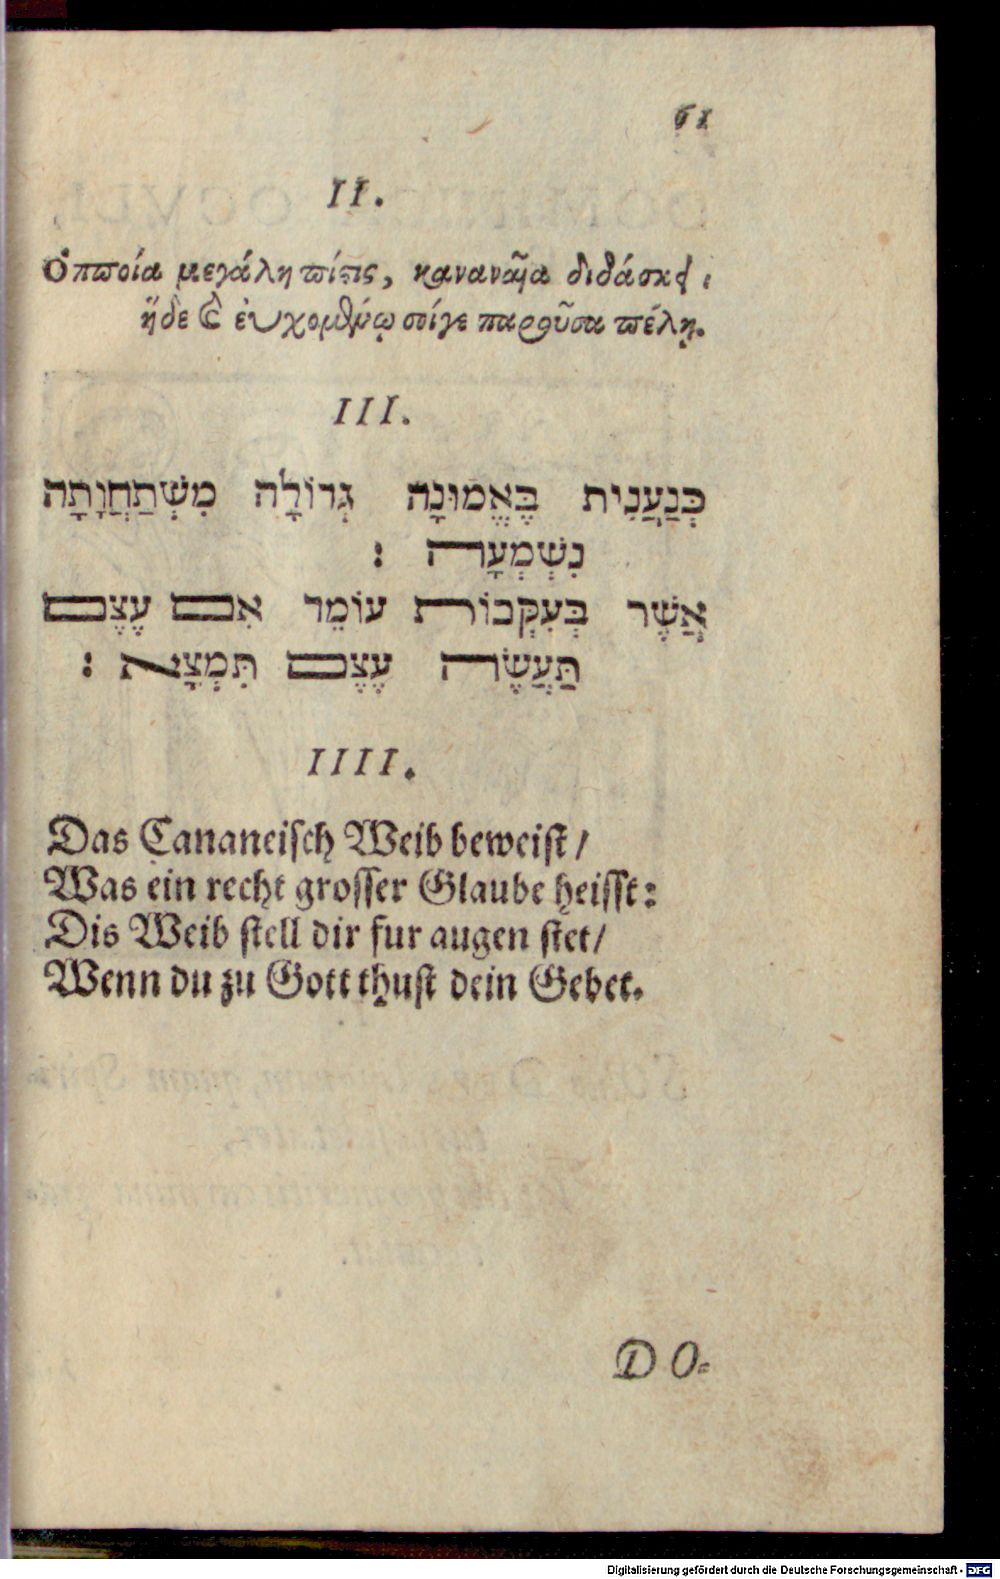 61
II.
Ὁπποία μεγάλη πίστις, καναναῖα διδάσκει·
ἥδε σοὶ εὐχομένῳ σοίγε παροῦσα πέλῃ.
III.
כְּנַעֲנִית בֶּאֱמוּנָה גְּדוֹלָה מִשְׁתַּחֲוָתָה
נִשְׁמְעָה :
אֲשֶׁר בְּעִקְּבוֹת עוֹמֵד אִם עֶצֶם
תַּעֲשֶׂה עֶצֶם תִּמְצָא :
IIII.
Das Cananeisch Weib beweist/
Was ein recht grosser Glaube heisst:
Dis Weib stell dir fur augen stet/
Wenn du zu Gott thust dein Gebet.
DO-
Digitalisierung gefördert durch die Deutsche Forschungsgemeinschaft - DFG